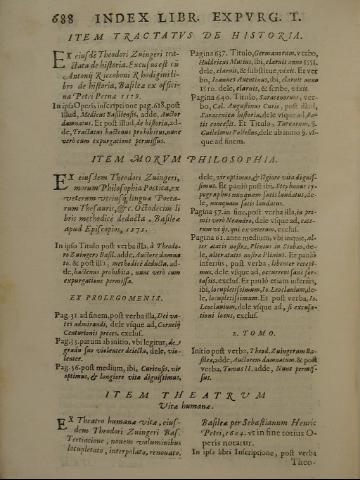 688 INDEX LIBR. EXPVRG. T.
ITEM TRACTATVS DE HISTORIA.
EX eiusdē Theodori Zuingeri tra-
ctatu de historia. Excusus est cū
Antonij Riccoboni Rhodigini li-
bro de historia, Basileæ ex offici-
na Petri Perna
In ipsa Operis inscriptione pag. 618. post
illud, Medici Basileensis, adde, Auctor
damnatus. Et post illud, de historia, ad-
de, Tractatus hactenus prohibitus, nunc
verò cum expurgatione permissus.
Pagina 637. Titulo, Germanorum, verbo,
Huldricus Mutius, ibi, claruit anno
dele, claruit, & substitue, vixit. Et ver-
bo, Ioannes Auentinus, ibi, claruit anno
dele, claruit, & scribe, vixit.
Pagina 640. Titulo, Saracenorum, ver-
bo, Cal. Augustinus Curio, post illud,
Saracenica historia, dele vsque ad
tio exclus. Et Titulo, Turcarum, §.
Guilielmus Postellus, dele ab anno §. vs-
que ad finem.
ITEM MORVM PHILOSOPHIA.
EX eiusdem Theodori Zuingeri,
morum Philosophia Poetica, ex
veterum vtriusq; linguæ Poeta-
rum Thesauris, &c. Octodecim li-
bris methodicè deducta. Basileæ
apud Episcopios,
In ipso Titulo post verba illa, à Theodo-
ro Zuingero Basil. adde, Auctore damna-
to, & post illa, methodicè deducta, ad-
de, hactenus prohibita, nunc verò cum
expurgatione permissa.
EX PROLEGOMENIS.
Pag. 31. ad finem, post verba illa, Dei va-
tes admirandi, dele vsque ad, Cornelij
Centurionis preces, exclus.
Pag. 35. parum ab initio, vbi legitur,
gradu suo violenter deiecta, dele, vio-
lenter.
Pag. 56. post medium, ibi, Carinus, vir
optimus, & longiore vita dignissimus,
dele, vir optimus, & longiore vita dignis-
simus. Et paulò post ibi, Stephanus
pugregius nunquam satis laudatus, de-
le, nunquam satis laudatus.
Pagina 57. in fine, post verba illa,
nis Neandro, dele vsque ad,
rum vt ipsi, qui ex veterum, exclus.
Pagina 61. ante medium, vbi incipit, al-
ter ætatis nostræ, Plinius in Stobæo, de-
le, alter ætatis nostræ Plinius. Et paulò
inferius, post verba illa,
dele vsque ad,
exclus. Et paulò etiam inferiùs,
ibi, locupletissimum, Io. Leonclauium, de-
le, locupletissimum. Et post verba, Io.
Leonclauium, dele vsque ad,
tiones locis, exclus.
2. TOMO.
Initio post verbo, Theod. Zuingerum Ba-
sileæ, adde, Auctorem damnatum. Et post
verba, Tomus II. adde, Nunc permis-
sus.
ITEM THEATRVM
Vitæ humanæ.
EX Theatro humanæ vitæ, eius-
dem Theodori Zuingeri Bas.
Tertiatione, nouem voluminibus
locupletato, interpolato, renouato.
Basileæ per Sebastianum Henric
Petri, 1604. vt in fine totius O-
peris notatur.
In ipsis libri Inscriptione, post verba
Theo-